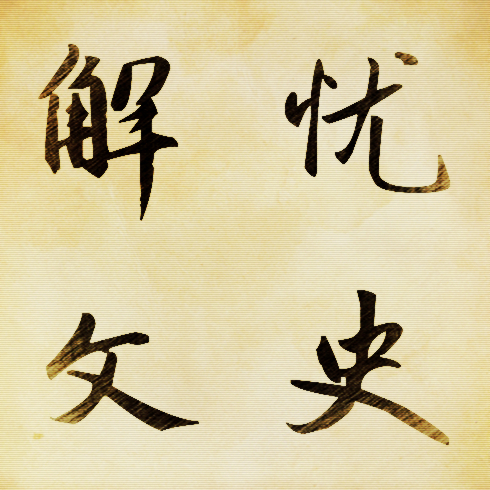 解忧
文史